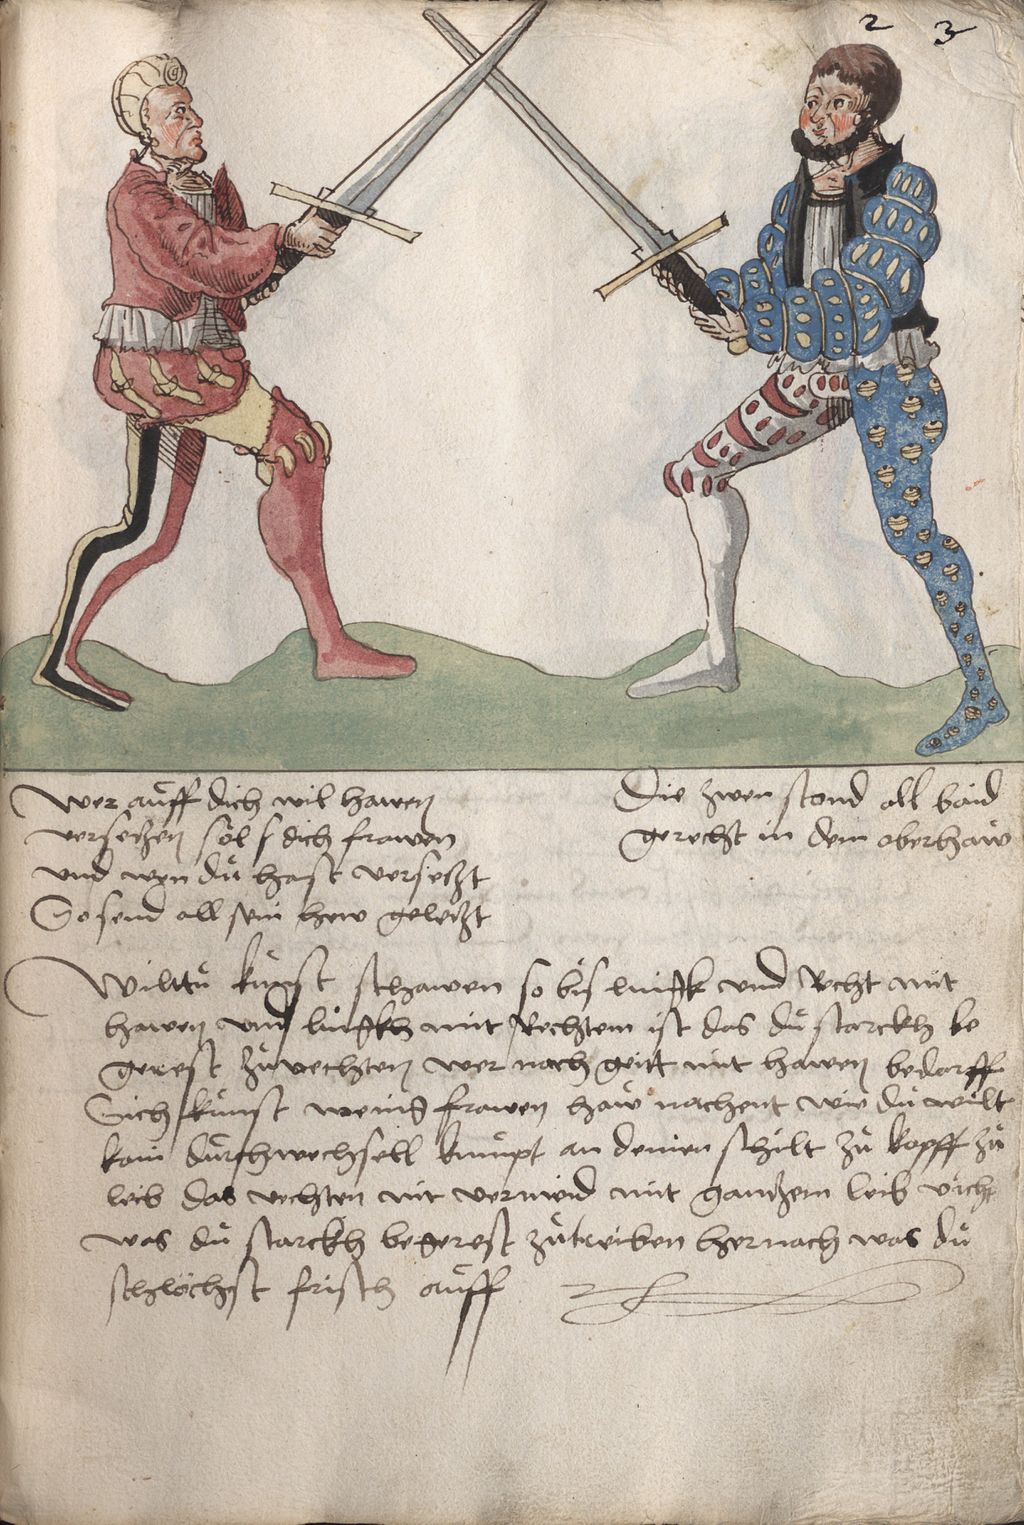 2 3
Wer aůff dich wil hawen
versetzen sol s dich frawen
und wen dů hast versetzt
So send all sein hew geletzt
Die zwen stond all baid
gerecht in dem oberhaw
Wilttu kůnst schawen so bis linckh und Recht mit
hawen und linckh mit Rechtem ist das dů starckh be
gerest zů vechten wer nach geitt mit hawen bedarff
Sich kůnst wenig frawen haw nachent wie dů wilt
kain důrchwechsell kumpt an deinen schilt zů kopff zů
leib das vechten nit vermeid mit gantzem leib vicht
was dů starckh begerest zůtreiben hernach was dů
schlöchst frisch aůff